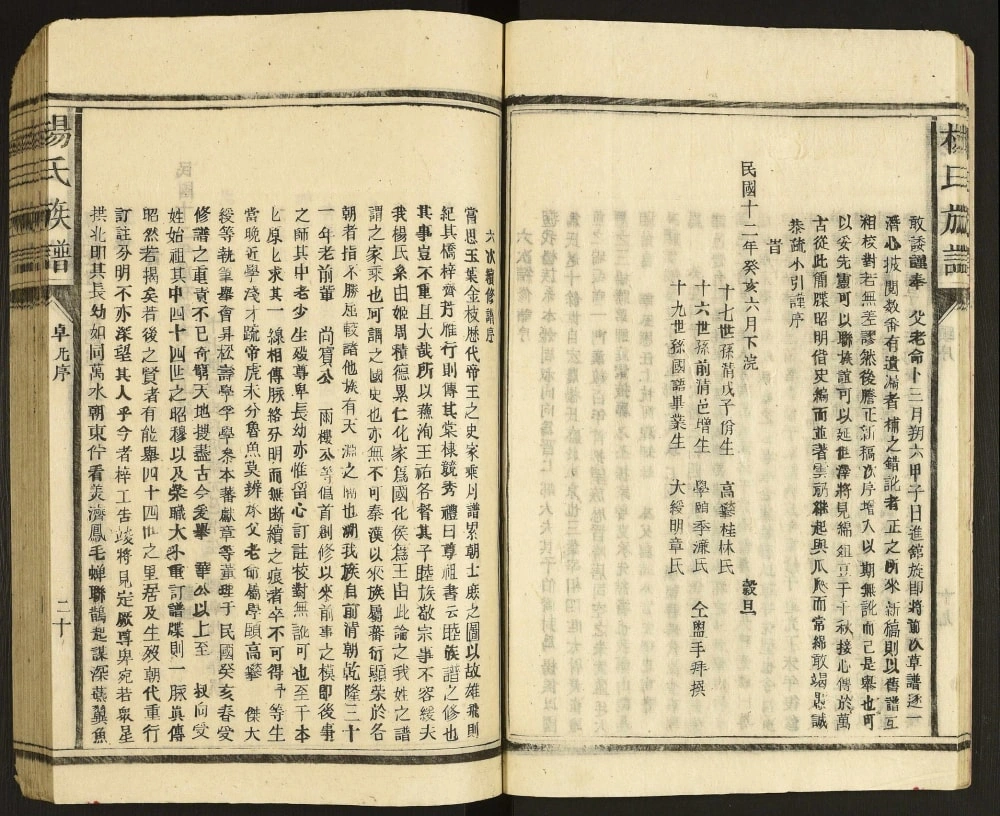 楊氏族譜
敢諉謹奉 父老命卜三月朔六甲子日進館旋即將前次草譜逐一
潛心披閱数番有遺漏者補之錯訛者正之所來新稿則以舊譜互
相校對若無差謬然後謄正新稿次序增入以期無訛而已是舉也可
以妥先靈可以聯族誼可以延世澤將見綿俎豆于千秋接心傳於萬
古從此簡牒昭明借史編而並著雲礽繼起與瓜瓞而常綿敢竭愚誠
恭疏小引謹序
旹
民國十二年癸亥六月下浣 穀旦
十七世孫清戊子佾生 高攀桂林氏
十六世孫前清邑增生 學頤季濂氏 仝盥手拜撰
十九世孫國語畢業生 大綬明章氏
六次續修譜序
嘗思玉葉金枝歷代帝王之史家乘月譜累朝士庶之圖以故雄飛則
紀其橋梓齊芳雁行則傳其棠棣競秀禮曰尊祖書云睦族譜之修也
其事豈不重且大哉所以蘓洵王祐各督其子睦族敬宗事不容緩夫
我楊氏系由姬周積德累仁化家為國化侯為王由此論之我姓之譜
謂之家乘也可謂之國史也亦無不可泰漢以來族屬蕃衍顯榮於各
朝者指不勝屈較諸他族有天淵之隔也溯我族自前清朝乾隆三十
一年老前輩 尚寶公 雨樓公等倡首創修以來前事之模即後事
之師其中老少生歿尊卑長幼亦惟留心訂註校對無訛可也至于本
七原七求其一線相傳脈絡分明而無斷續之痕者卒不可得予等生
當晚近學淺才疏帝虎未分魯魚莫辨承父老命屬學頤高攀 傑大
綬等執筆舉會昇松壽學孚學泰本蕃獻章等董理于民國癸亥春受
修譜之重責不已命朝天地搜盡古今爰舉 華公以上至 叔向受
姓始祖其中四十四世之昭穆以及榮職大小重訂譜牒則一脈真傳
昭然若揭矣若後之賢者有能舉四十四世之里居及生歿朝代重行
訂註分明不亦深望其人乎今者梓工告竣將見定厥尊卑宛若衆星
拱北叩其長幼如同萬水朝東佇看羙濟鳳毛蟬聯鵲起謀深燕翼魚
楊氏族譜
卓九序
二十